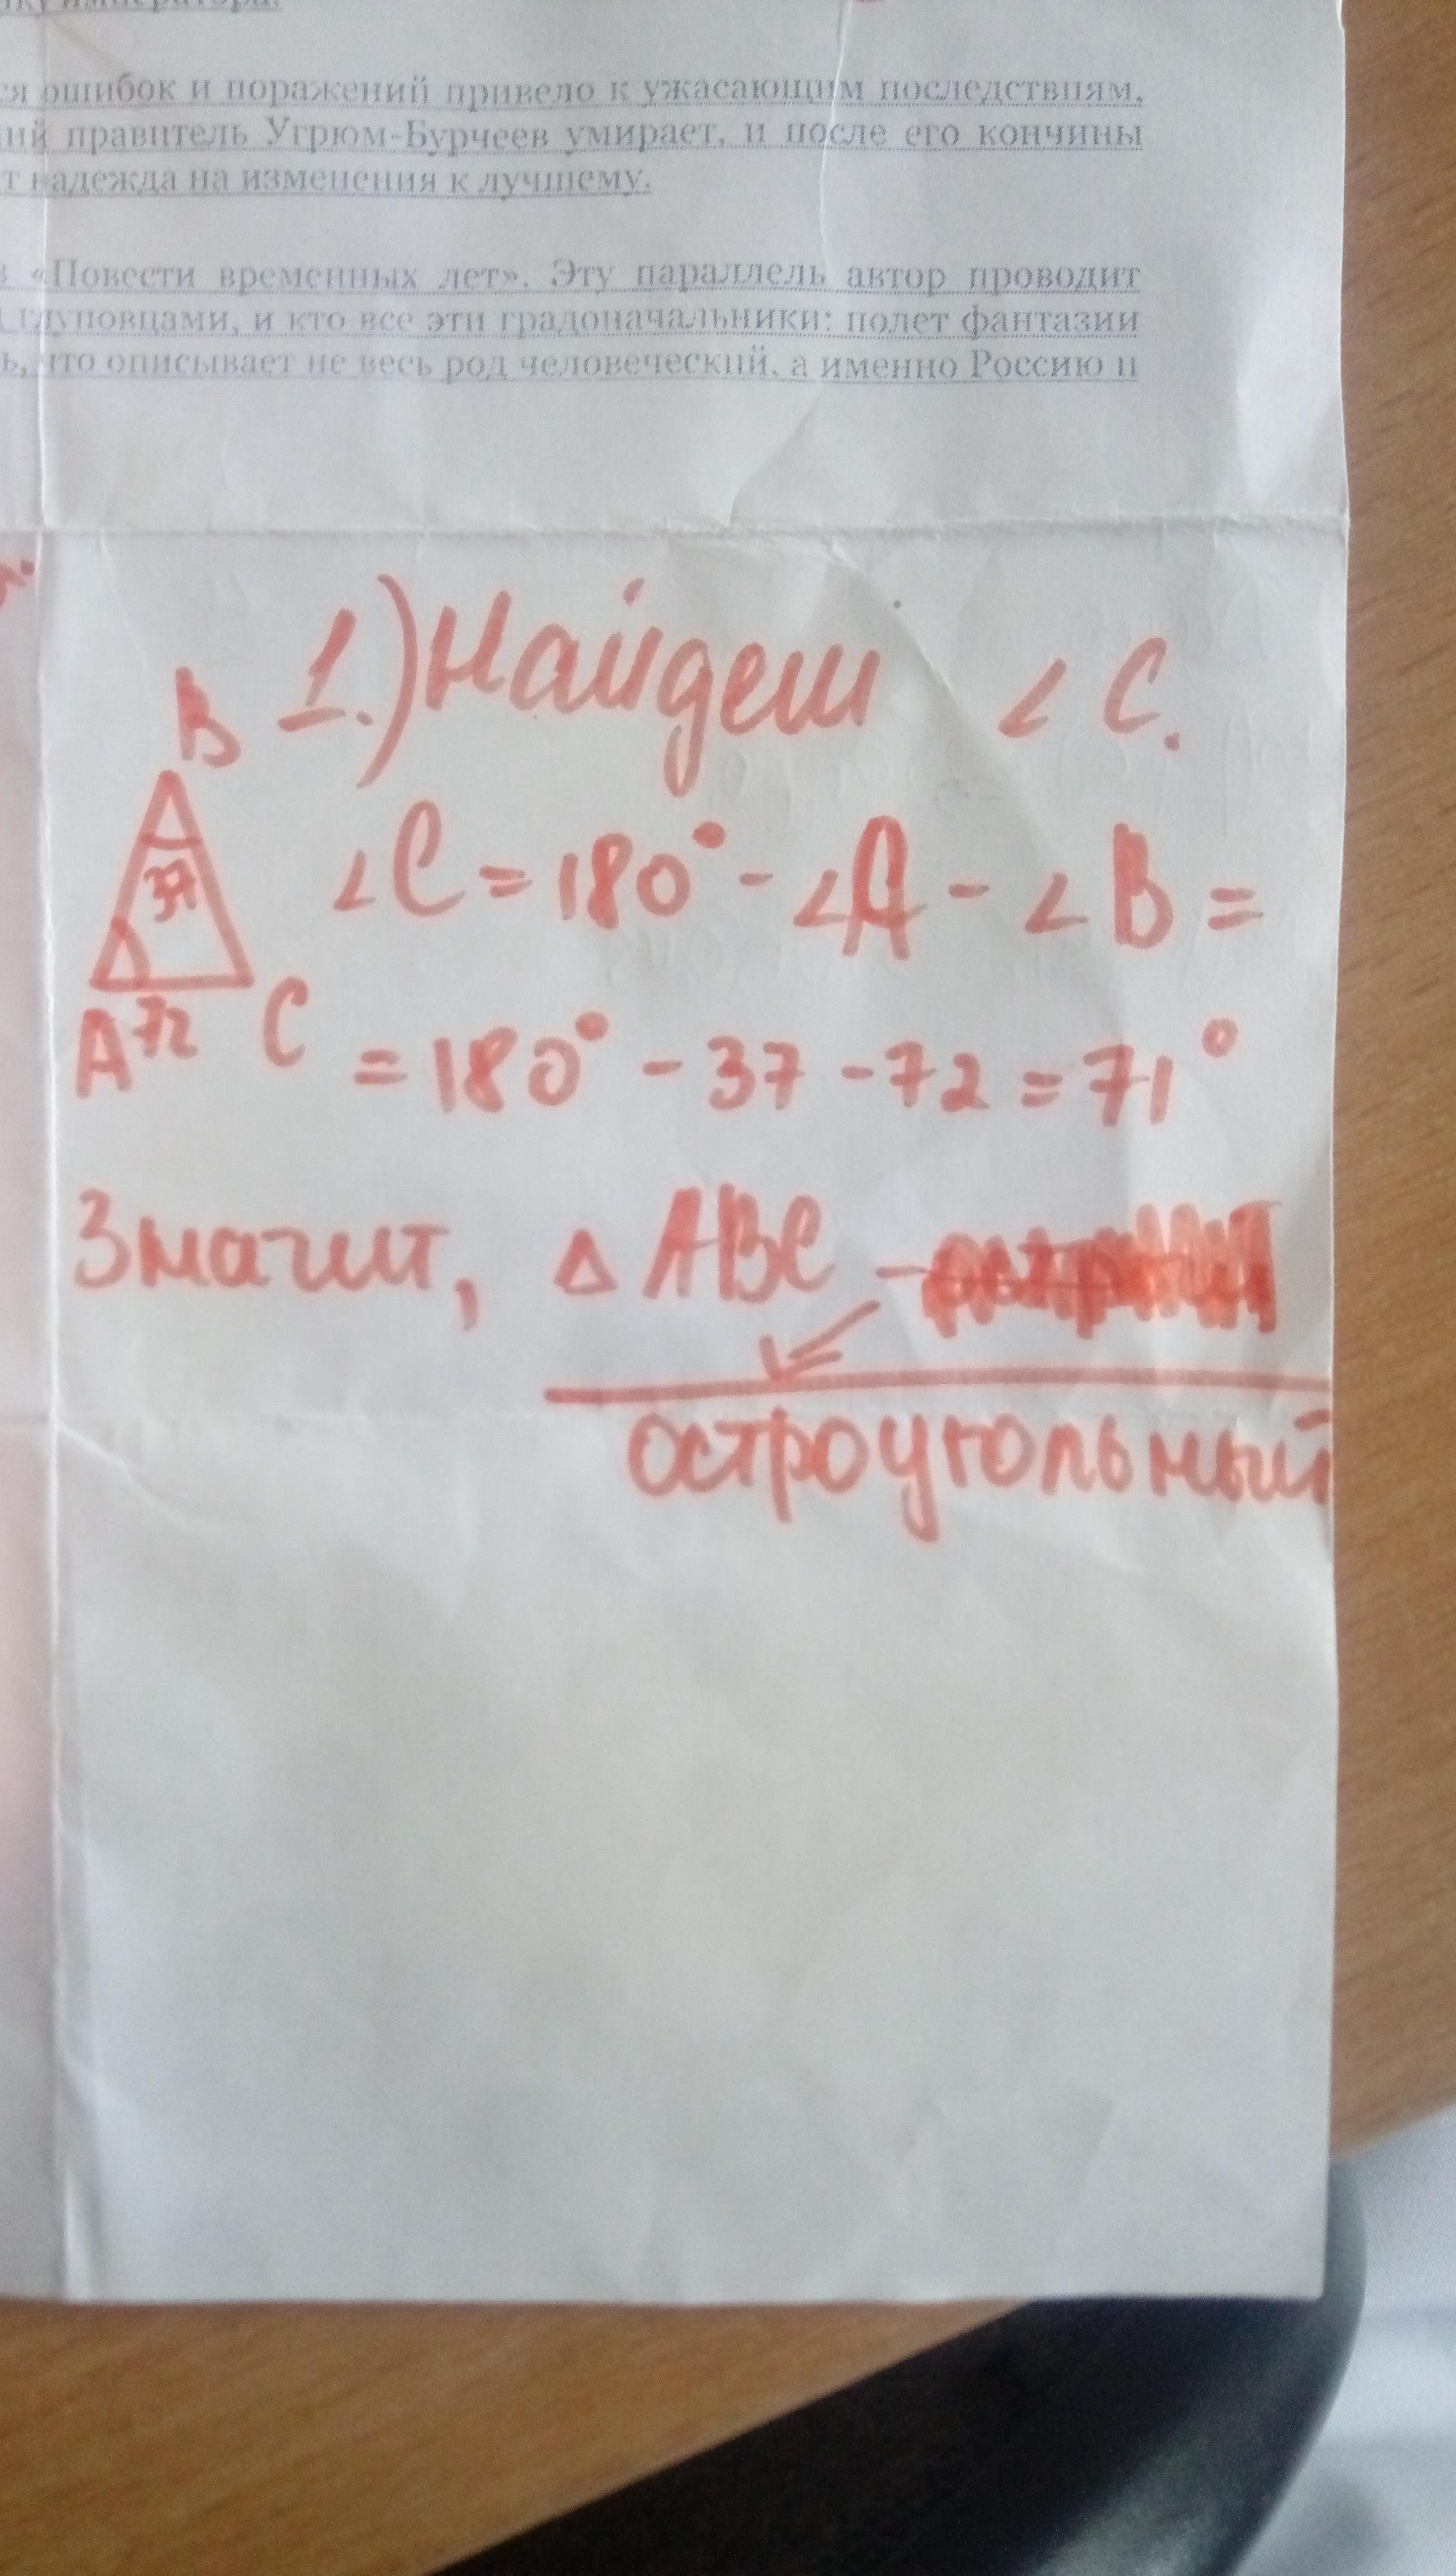 ся ошибок и поражений привело к ужасающим последствиям,
правитель Угрюм-Бурчеев умирает, и после его кончины
т надежда на изменения к лучшему.
в «Повести временных лет». Эту параллель автор проводит
глуповцами, и кто все эти градоначальники: полет фантазии
ь, что описывает не весь род человеческий, а именно Россию и
1.) Найдем ∠ C.
B
37
A 72 C
∠C = 180° - ∠A - ∠B =
= 180° - 37 - 72 = 71°
Значит, △ ABC -
остроугольный